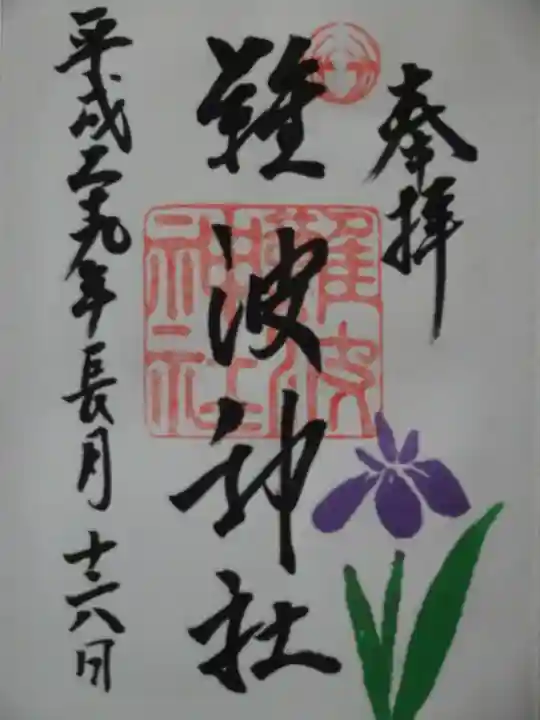 奉拝
難波神社
難波神社
平成二十九年長月十六日